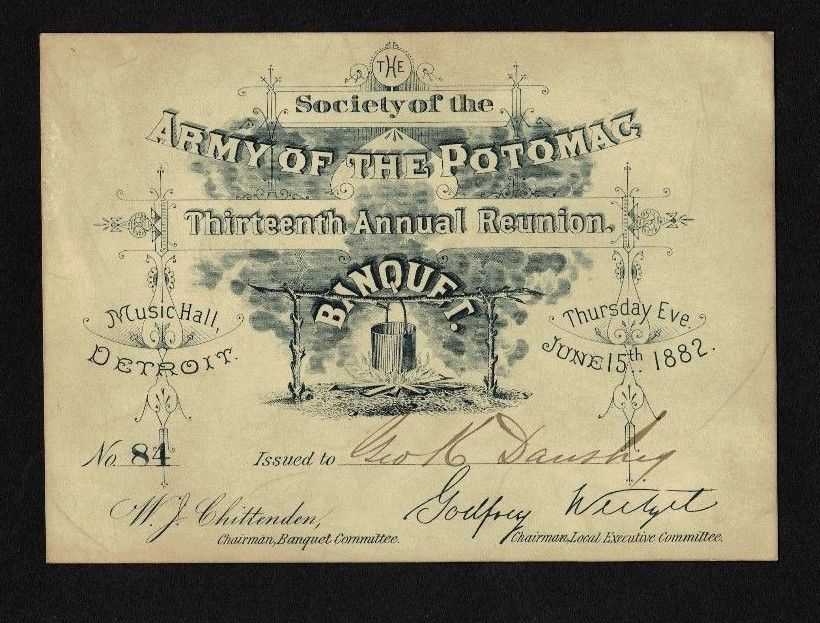 THE
Society of the
ARMY OF THE POTOMAC
Thirteenth Annual Reunion.
BANQUET.
Music Hall,
DETROIT.
Thursday Eve.
JUNE 15th 1882.
No. 84 Issued to Geo K Danshey
W. J. Chittenden,
Chairman, Banquet Committee.
Godfrey Weitzel
Chairman, Local Executive Committee.